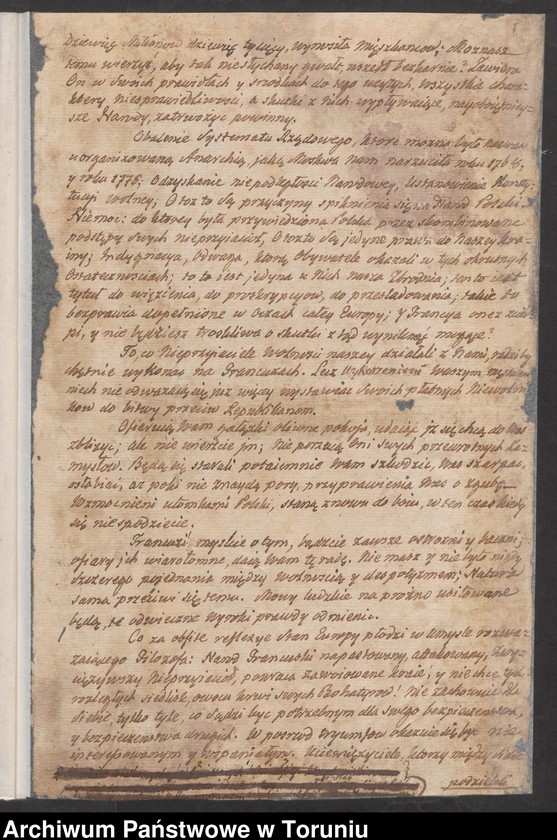 Dziewięć Milionow dziewięć tysięcy, wynosiła Mieszkancow; Możnasz
komu wierzyć, aby tak niesłychany gwałt, uszedł bezkarnie? Zawiera
On w swoich prawidłach y srzodkach do tego użytych, wszystkie chara-
ktery niesprawiedliwości, a skutki z nich wypływaiące,
sze Narody, zatrwożyć powinny.
Obalenie Systematu Rządowego, ktore można było nazwać
uorganizowaną Anarchią, jaką Moskwa Nam narzuciła roku 1768,
y roku 1775; Odzyskanie niepodległości Narodowey, Ustanowienie Konsty-
tucyi wolney; Otoż to są przyczyny sprzknienia się na Narod Polski.
Niemoc: do ktorey była przywiedziona Polska przez skombinowane
podstępy swych nieprzyiacioł, Otoż to są jedyne prawa do Naszey kra-
iny; Indygnacya, Odwaga, ktorą Obywatele okazali w tych okrutnych
Ostatecznościach; to to iest jedyna u Nich nasza Zbrodnia; ten to iest
tytuł do więzienia, do proskrypcyow, do prześladowania; takie to
bezprawia dopełnione w Oczach całey Europy; y Francya one
pi, y nie będziesz troskliwa o skutki z tąd wyniknąć mogące?
To, co Nieprzyiaciele Wolności naszey działali z Nami, radzi by
chętnie wykonać na Francuzach. Lecz Wykorzenieni Waszym męstwem
niech nie odważają się już więcey wystawiać Swoich płatnych Niewolni-
kow do bitwy przeciw Republikanom.
Ofiaruią Wam gałązki oliwne pokoju, udaiąc iż się chcą do Was
zbliżyć; ale nie wierzcie jm; Nie porzucą Oni swych przewrotnych Za-
mysłow. Będą się starali potaiemnie Wam szkodzić, Was szarpać,
osłabiać, aż poki nie znaydą pory, przyprawienia Was o zgubę.
Wzmocnieni ułomkami Polski, staną znowu do boiu, w ten czas kiedy
się nie spodziecie.
Francuzi! myślcie o tym, bądźcie zawsze ostrożni y baczni;
ofiary jch wiarołomne, daią Wam tę radę. Nie masz y nie było nigdy
szczerego pojednania między wolnością y despotyzmem; Natura
sama przeciwi się temu. Mowy ludzkie na prożno usiłowane
będą, te odwieczne Wyroki prawdy odmienić.
Co za obfite reflexye stan Europy płodzi w Umyśle rozwa-
żaiącego Filozofa: Narod Francuski napastowany, attakowany, Zwy-
ciężywszy Nieprzyiacioł, powraca zawoiowane kraie, y nie chce tych
rozległych siedlisk, owocu krwi swych Bohatyrow! Nie zachowuie dla
siebie, tylko tyle, co sądzi być potrzebnym dla swego bezpieczeństwa,
y bezpieczeństwa drugich. W pośrzod tryumfow okazuie się być nie
interesowanym y wspaniałym. Uciemiężyciele, ktorzy między siebie
podzielili
Archiwum Państwowe w Toruniu